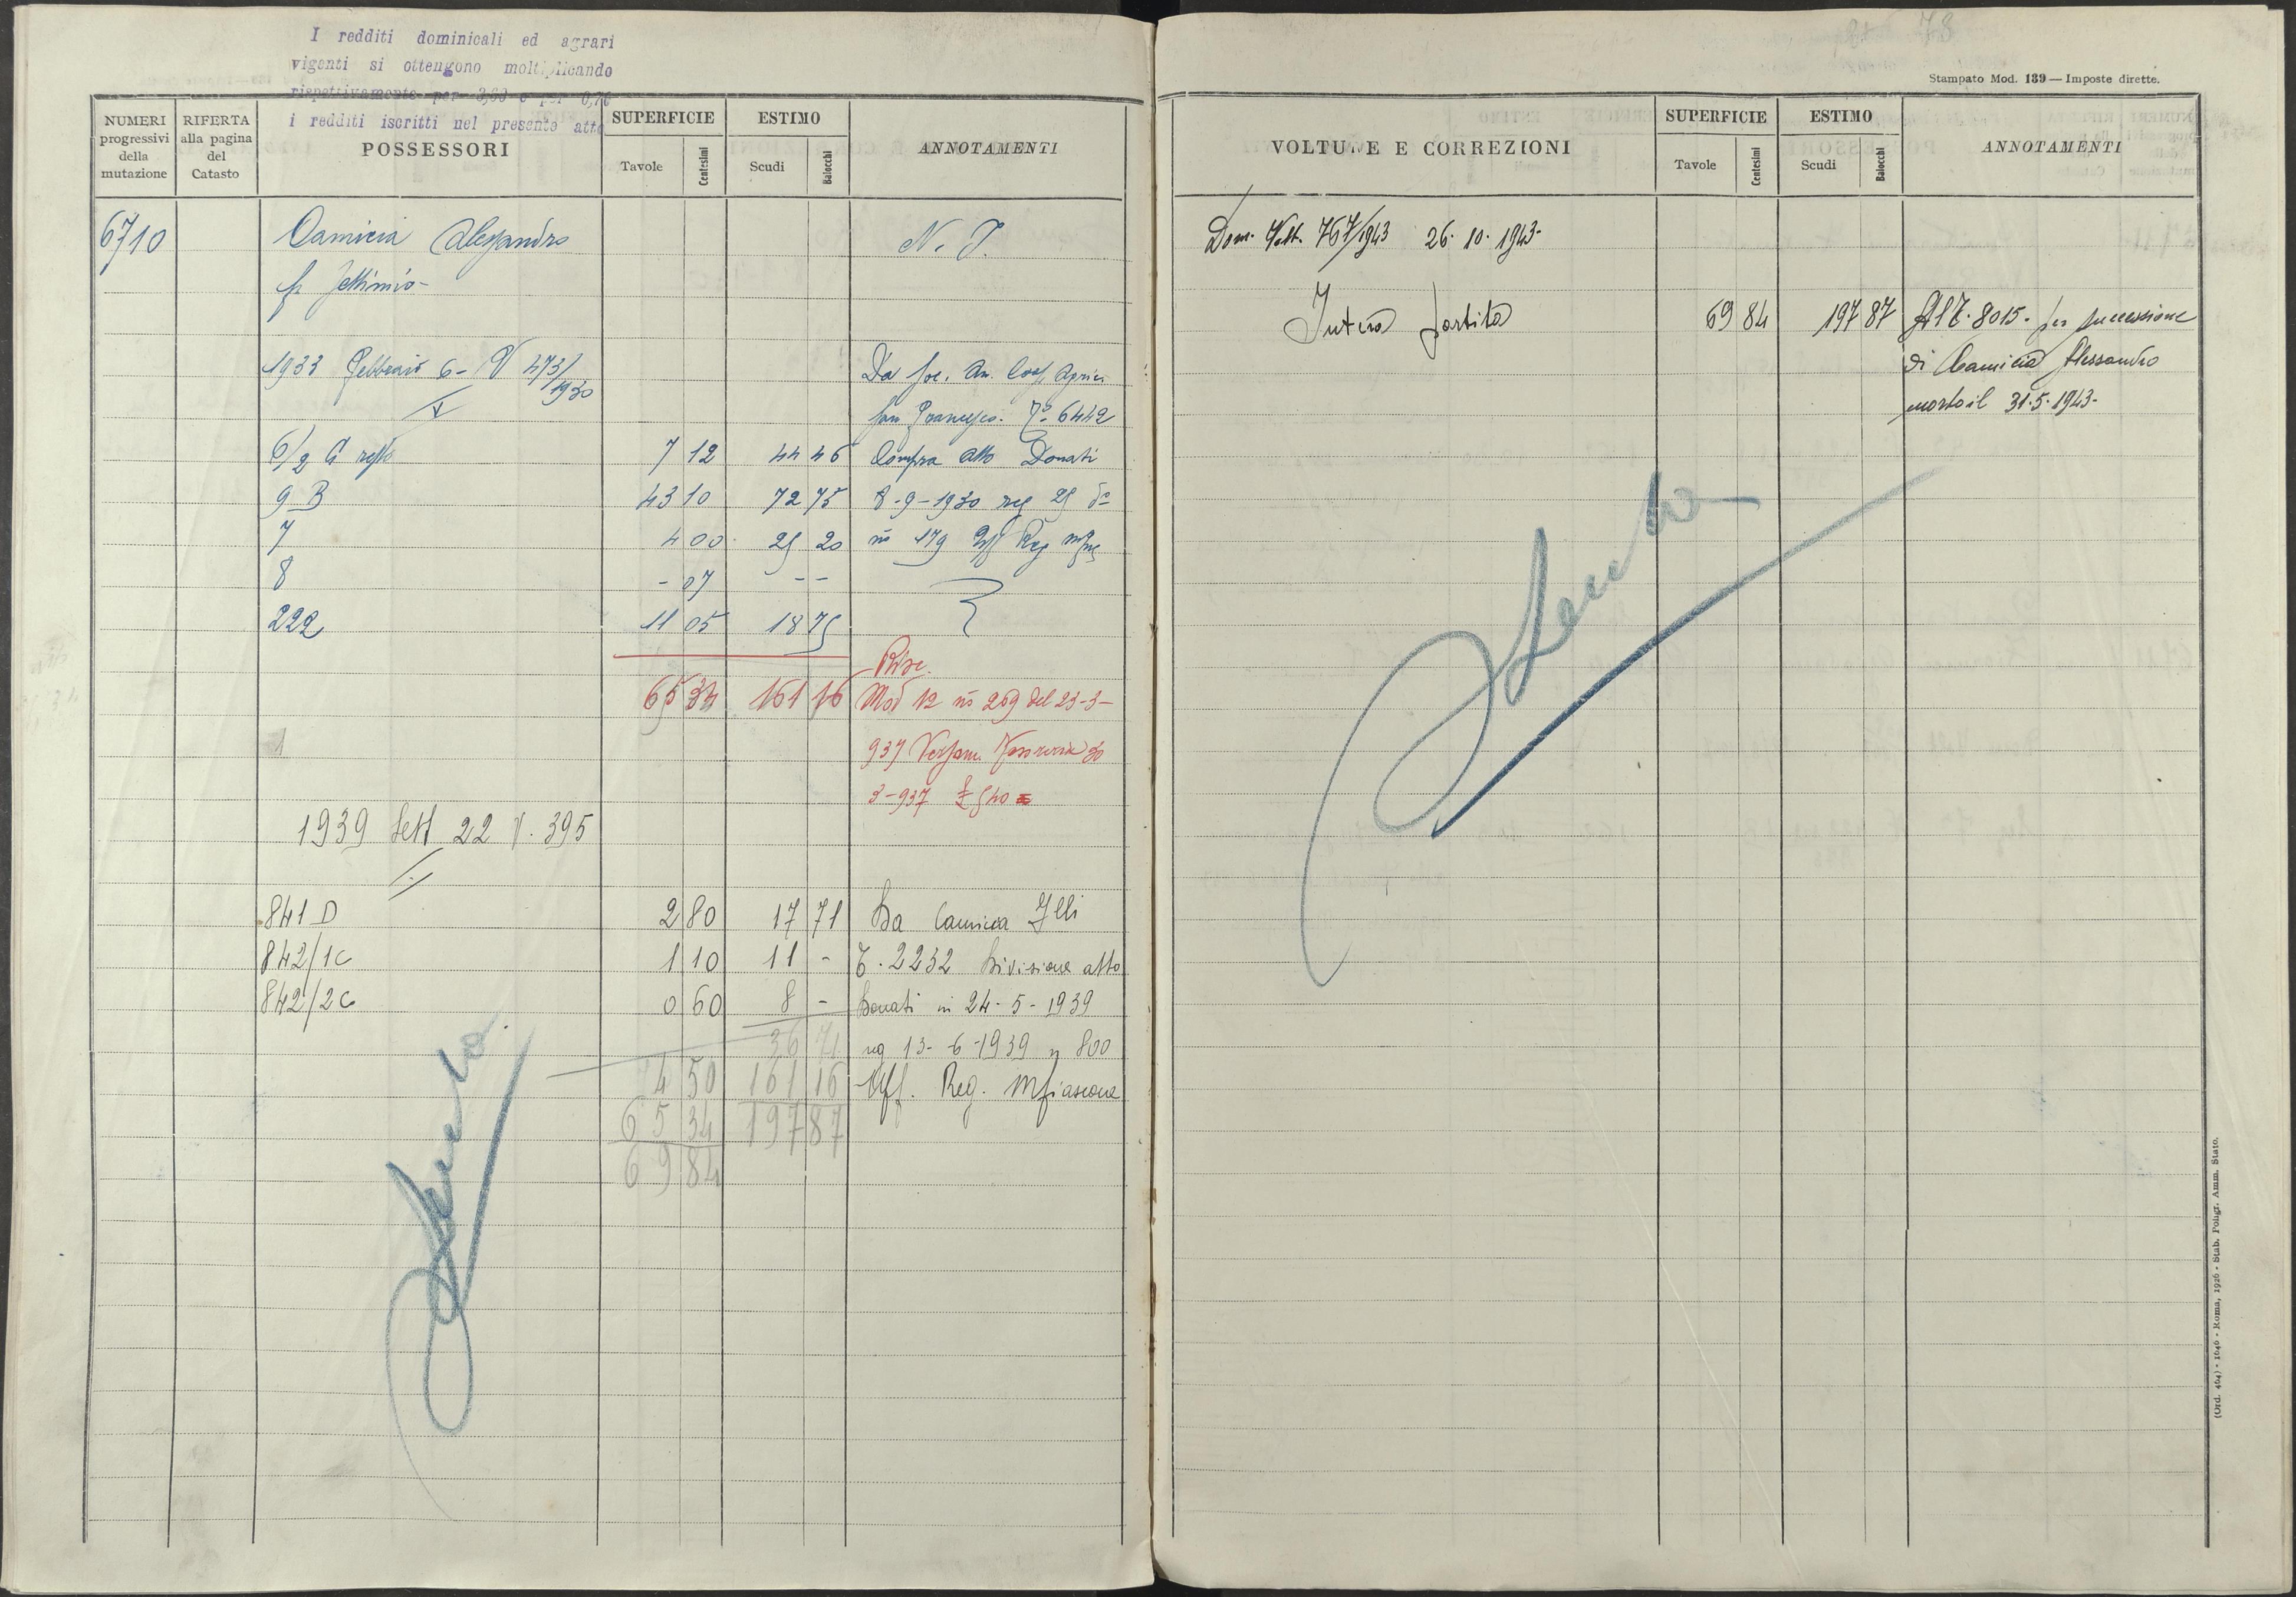 I redditi dominicali ed agrari
vigenti si ottengono moltiplicando
rispettivamente per 3,60 e per 0,70
i redditi iscritti nel presente atto
NUMERI progressivi della mutazione
RIFERTA alla pagina del Catasto
POSSESSORI
SUPERFICIE
Tavole
Centesimi
ESTIMO
Scudi
Baiocchi
ANNOTAMENTI
6710 Camicia Alessandro N. T.
fu Settimio
1933 Febbraio 6 - V 473/1930 Da Soc. An. Coop. Agric.
San Francesco. T° 6442
6/2 A resto 7 12 44 46 Compra atto Donati
9 B 43 10 72 75 8-9-1930 reg 25 do
7 4 00 25 20 n° 179 Uff Reg
8 - 07 - -
222 11 05 18 75
65 34 161 16
Mod 12 n° 269 del 23-3-
937 Versam. Tesoreria 30
3-937 £
1939 Sett 22 V. 395
841 D 2 80 17 71 Da Camicia F.lli
842/1C 1 10 11 - T. 2232 Divisione atto
842/2C 0 60 8 - Donati in 24-5-1939
36 71 reg 13-6-1939 n 800
4 50 161 16 Uff. Reg. Mfiascone
65 34 197 87
69 84
78
Stampato Mod. 139 — Imposte dirette.
VOLTURE E CORREZIONI
SUPERFICIE
Tavole
Centesimi
ESTIMO
Scudi
Baiocchi
ANNOTAMENTI
Dom. Volt. 767/1943 26.10.1943-
Intera partita 69 84 197 87 Al T. 8015. per successione
di Camicia Alessandro
morto il 31.5.1943-
(Ord. 464) - 1646 - Roma, 1926 - Stab. Poligr. Amm. Stato.